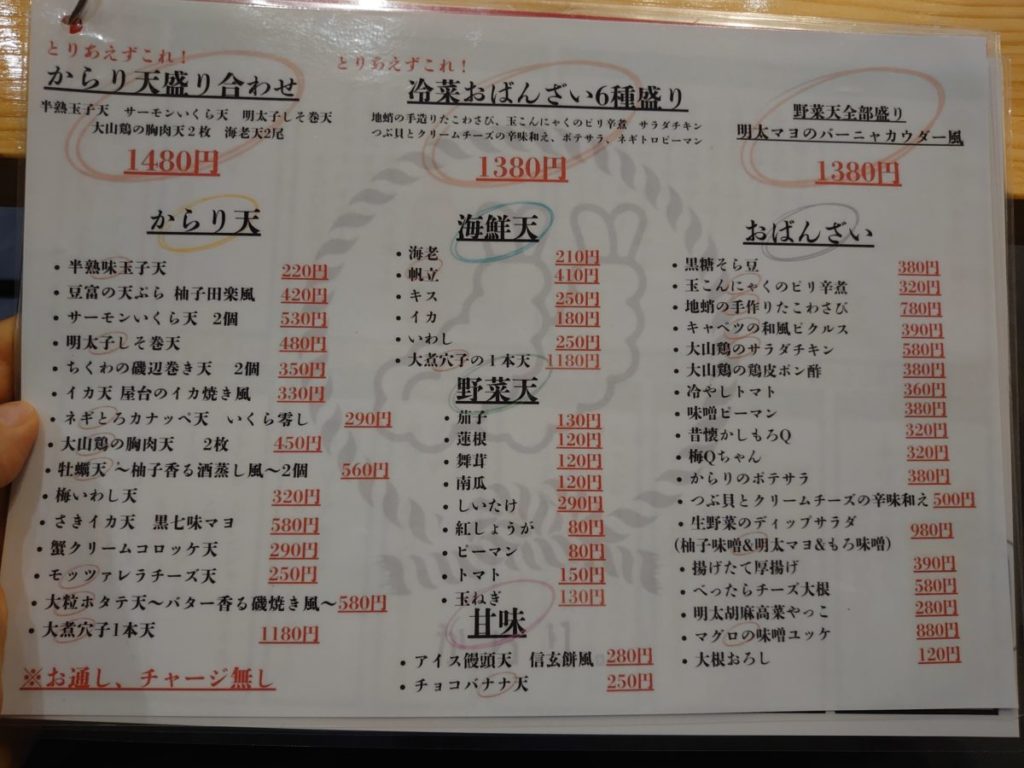 とりあえずこれ!
からり天盛り合わせ
半熟玉子天 サーモンいくら天 明太子しそ巻天
大山鶏の胸肉天2枚 海老天2尾
1480円
とりあえずこれ!
冷菜おばんざい6種盛り
地蛸の手造りたこわさび、玉こんにゃくのピリ辛煮 サラダチキン
つぶ貝とクリームチーズの辛味和え、ポテサラ、ネギトロピーマン
1380円
野菜天全部盛り
明太マヨのバーニャカウダー風
1380円
からり天
・半熟味玉子天 220円
・豆富の天ぷら 柚子田楽風 420円
・サーモンいくら天 2個 530円
・明太子しそ巻天 480円
・ちくわの磯辺巻き天 2個 350円
・イカ天 屋台のイカ焼き風 330円
・ネギとろカナッペ天 いくら零し 290円
・大山鶏の胸肉天 2枚 450円
・牡蠣天 〜柚子香る酒蒸し風〜2個 560円
・梅いわし天 320円
・さきイカ天 黒七味マヨ 580円
・蟹クリームコロッケ天 290円
・モッツァレラチーズ天 250円
・大粒ホタテ天〜バター香る磯焼き風〜 580円
・大煮穴子1本天 1180円
※お通し、チャージ無し
海鮮天
・海老 210円
・帆立 410円
・キス 250円
・イカ 180円
・いわし 250円
・大煮穴子の1本天 1180円
野菜天
・茄子 130円
・蓮根 120円
・舞茸 120円
・南瓜 120円
・しいたけ 290円
・紅しょうが 80円
・ピーマン 80円
・トマト 150円
・玉ねぎ 130円
甘味
・アイス饅頭天 信玄餅風 280円
・チョコバナナ天 250円
おばんざい
・黒糖そら豆 380円
・玉こんにゃくのピリ辛煮 320円
・地蛸の手作りたこわさび 780円
・キャベツの和風ピクルス 390円
・大山鶏のサラダチキン 580円
・大山鶏の鶏皮ポン酢 380円
・冷やしトマト 360円
・味噌ピーマン 380円
・昔懐かしもろQ 320円
・梅Qちゃん 320円
・からりのポテサラ 380円
・つぶ貝とクリームチーズの辛味和え 500円
・生野菜のディップサラダ 980円
(柚子味噌&明太マヨ&もろ味噌)
・揚げたて厚揚げ 390円
・べったらチーズ大根 580円
・明太胡麻高菜やっこ 280円
・マグロの味噌ユッケ 880円
・大根おろし 120円